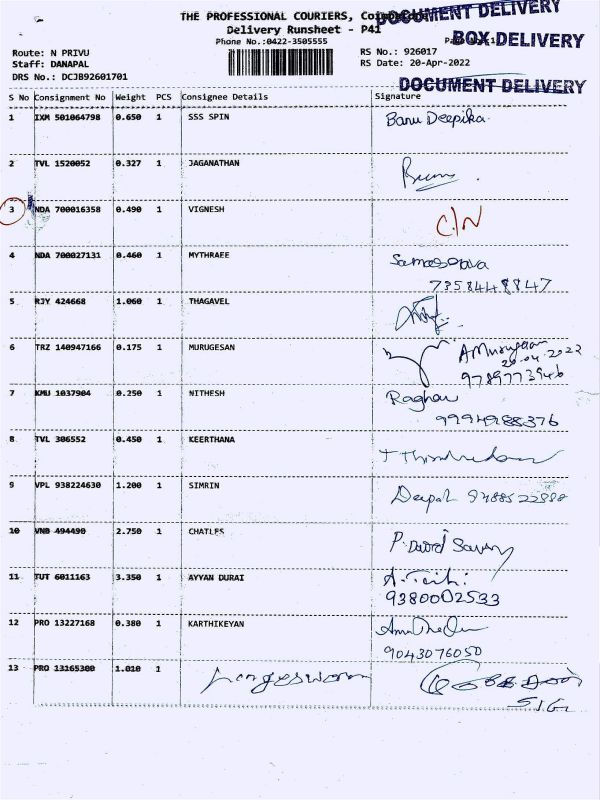 THE PROFESSIONAL COURIERS,
DOCUMENT DELIVERY
Delivery Runsheet - P41
BOX DELIVERY
Phone No.:0422-3505555
Route: N PRIVU
RS No.: 926017
Staff: DANAPAL
RS Date: 20-Apr-2022
DRS No.: DCJB92601701
DOCUMENT DELIVERY
S No Consignment No Weight PCS Consignee Details Signature
1 IXM 501064798 0.650 1 SSS SPIN Banu Deepika
2 TVL 1520052 0.327 1 JAGANATHAN
3 NDA 700016358 0.490 1 VIGNESH C/N
4 NDA 700027131 0.460 1 MYTHRAEE
7358448847
5 RJY 424668 1.060 1 THAGAVEL
6 TRZ 140947166 0.175 1 MURUGESAN A Murugesan
20.04.2022
9789773946
7 KMU 1037904 0.250 1 NITHESH Raghav
9994988376
8 TVL 306552 0.450 1 KEERTHANA
9 VPL 938224630 1.200 1 SIMRIN Deepak
10 VNB 494490 2.750 1 CHATLES P. David
11 TUT 6011163 3.350 1 AYYAN DURAI
9380002533
12 PRO 13227168 0.380 1 KARTHIKEYAN
9043076050
13 PRO 13165300 1.010 1